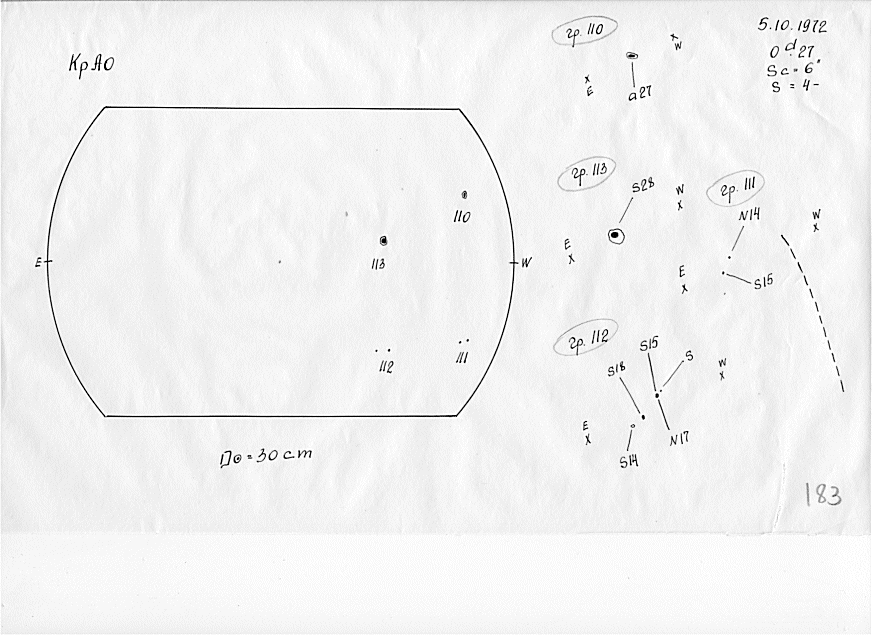 КрАО
5.10.1972
0 d. 27
Sc = 6"
S = 4-
гр. 110
W
E
a27
110
113
E
W
112
111
D⊙ = 30 cm
гр. 113
S28
W
E
гр. 111
N14
W
E
S15
гр. 112
S15
S18
S
W
E
S14
N17
183